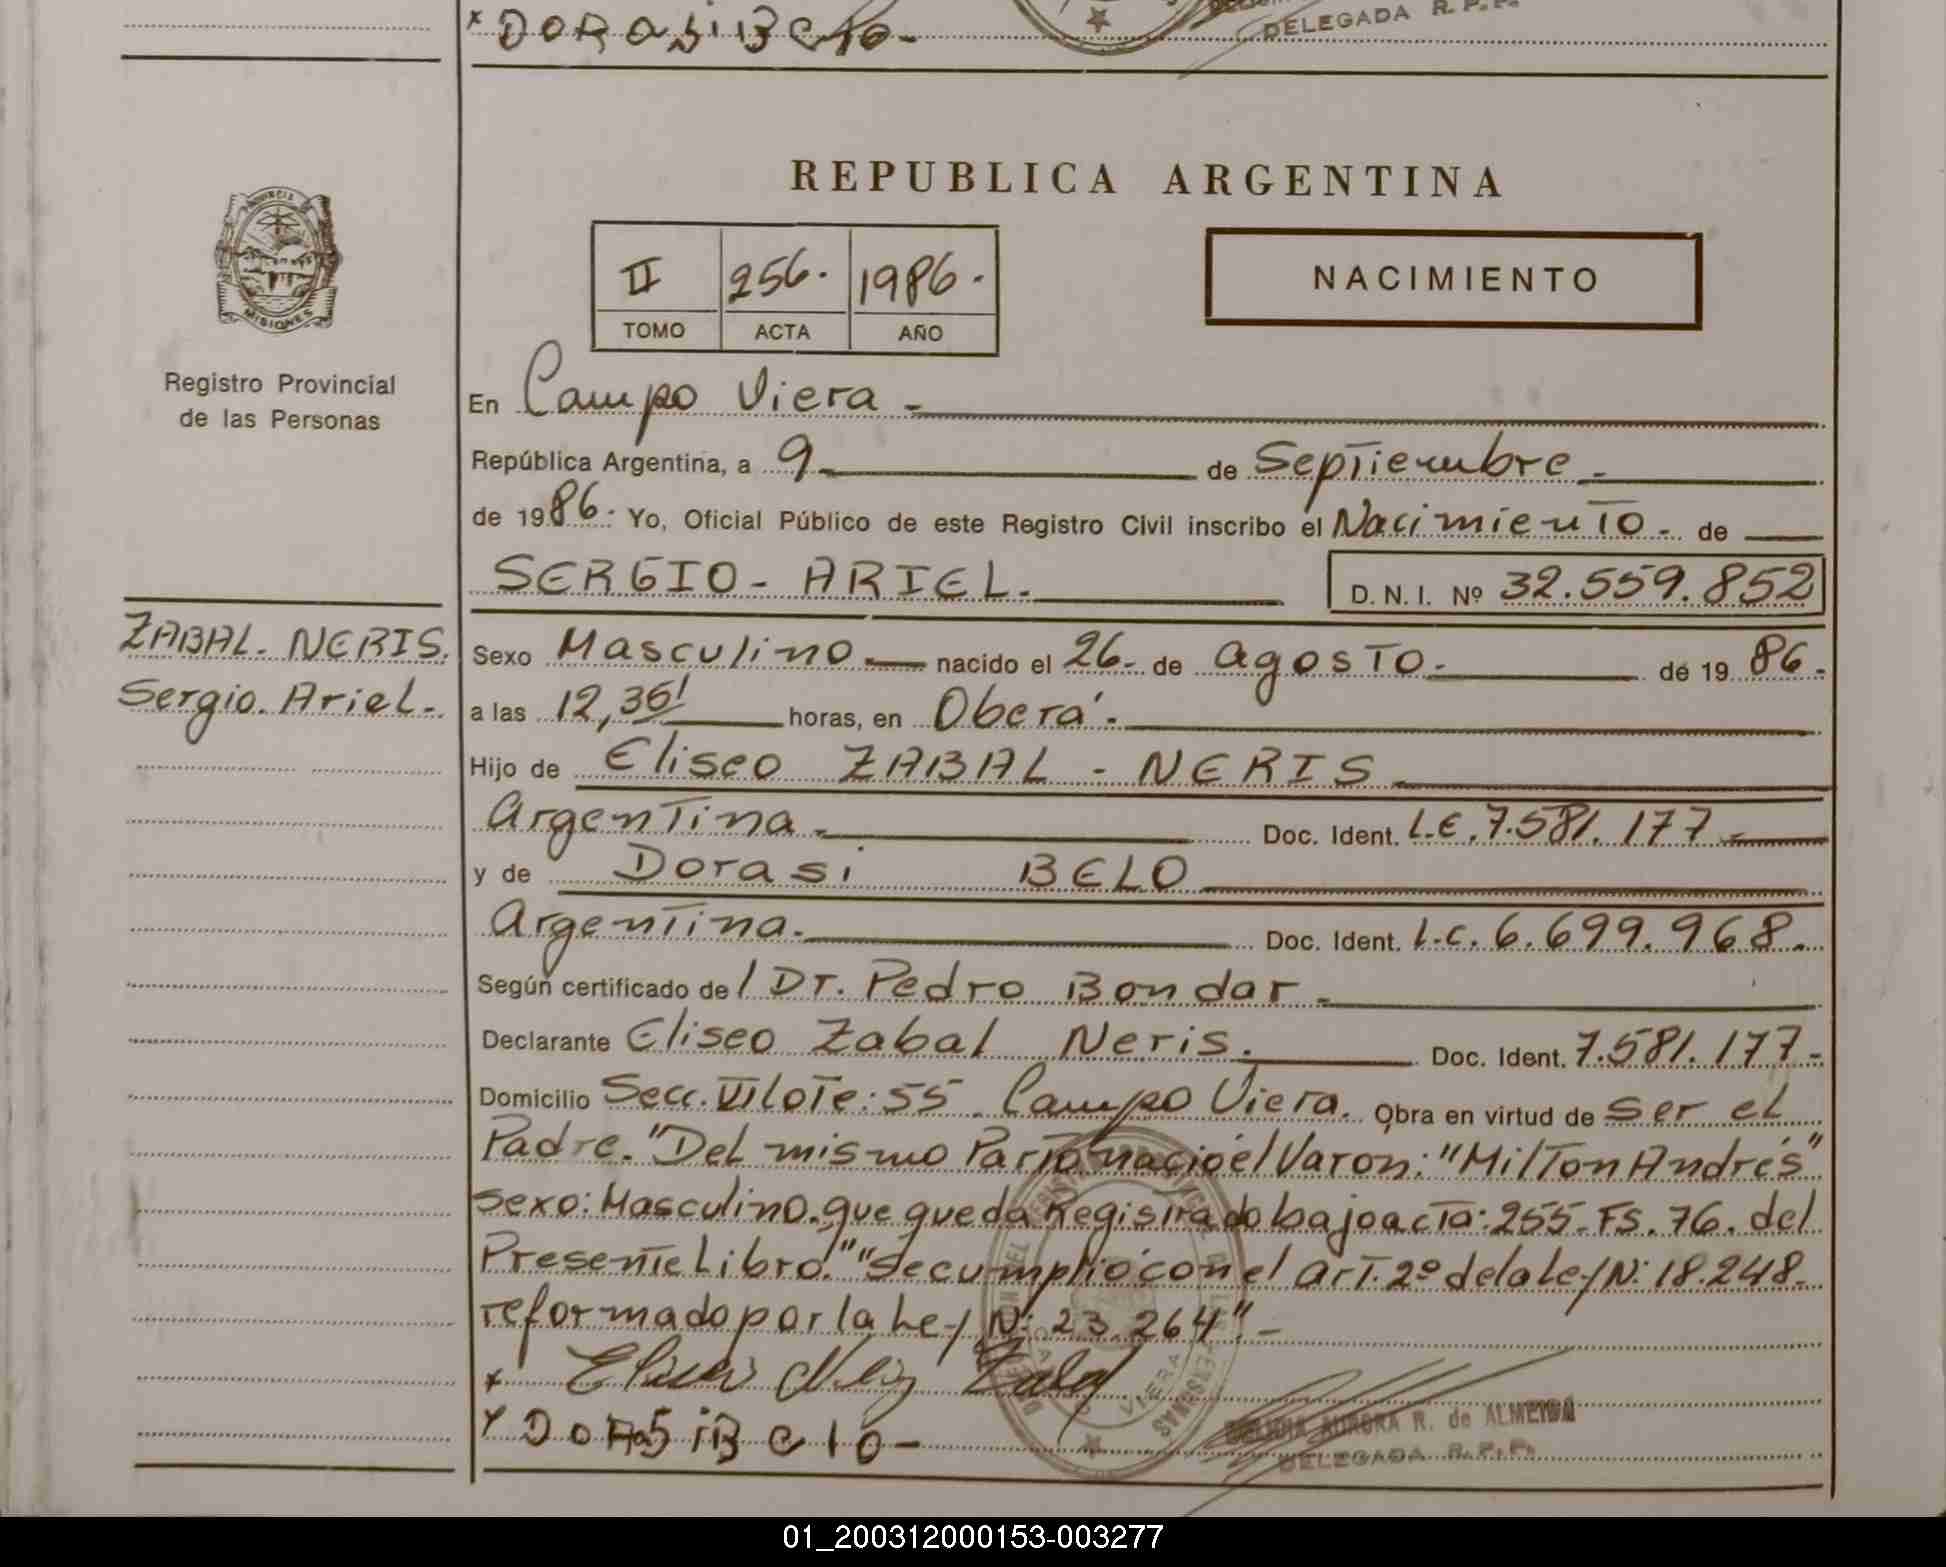 x DORASiBelo-
DELEGADA R.P.P.
REPUBLICA ARGENTINA
PROVINCIA
MISIONES
II 256. 1986.
TOMO ACTA AÑO
NACIMIENTO
Registro Provincial
de las Personas
En Campo Viera.
República Argentina, a 9 de Septiembre.
de 1986. Yo, Oficial Público de este Registro Civil inscribo el Nacimiento. de
SERGIO - ARIEL. D.N.I. Nº 32.559.852
ZABAL. NERIS.
Sergio. Ariel.
Sexo Masculino nacido el 26. de agosto. de 1986.
a las 12,36' horas, en Oberá.
Hijo de Eliseo ZABAL - NERIS
Argentina. Doc. Ident. L.E. 7.581.177
y de Dorasi BELO
Argentina. Doc. Ident. L.C. 6.699.968.
Según certificado del Dr. Pedro Bondar.
Declarante Eliseo Zabal Neris. Doc. Ident. 7.581.177-
Domicilio Secc. VII Lote: 55 Campo Viera. Obra en virtud de ser el
Padre. "Del mismo Parto nació el Varon: "Milton Andrés"
sexo: Masculino. que queda Registrado bajo acta: 255. FS. 76. del
Presente Libro." "Se cumplió con el art. 2º de la Ley N: 18.248.
reformado por la Ley N: 23.264".-
x Zabal
Y DORASiBelo-
CAMPO VIERA
AURORA R. de ALMEIDA
DELEGADA R.P.P.
01_200312000153-003277